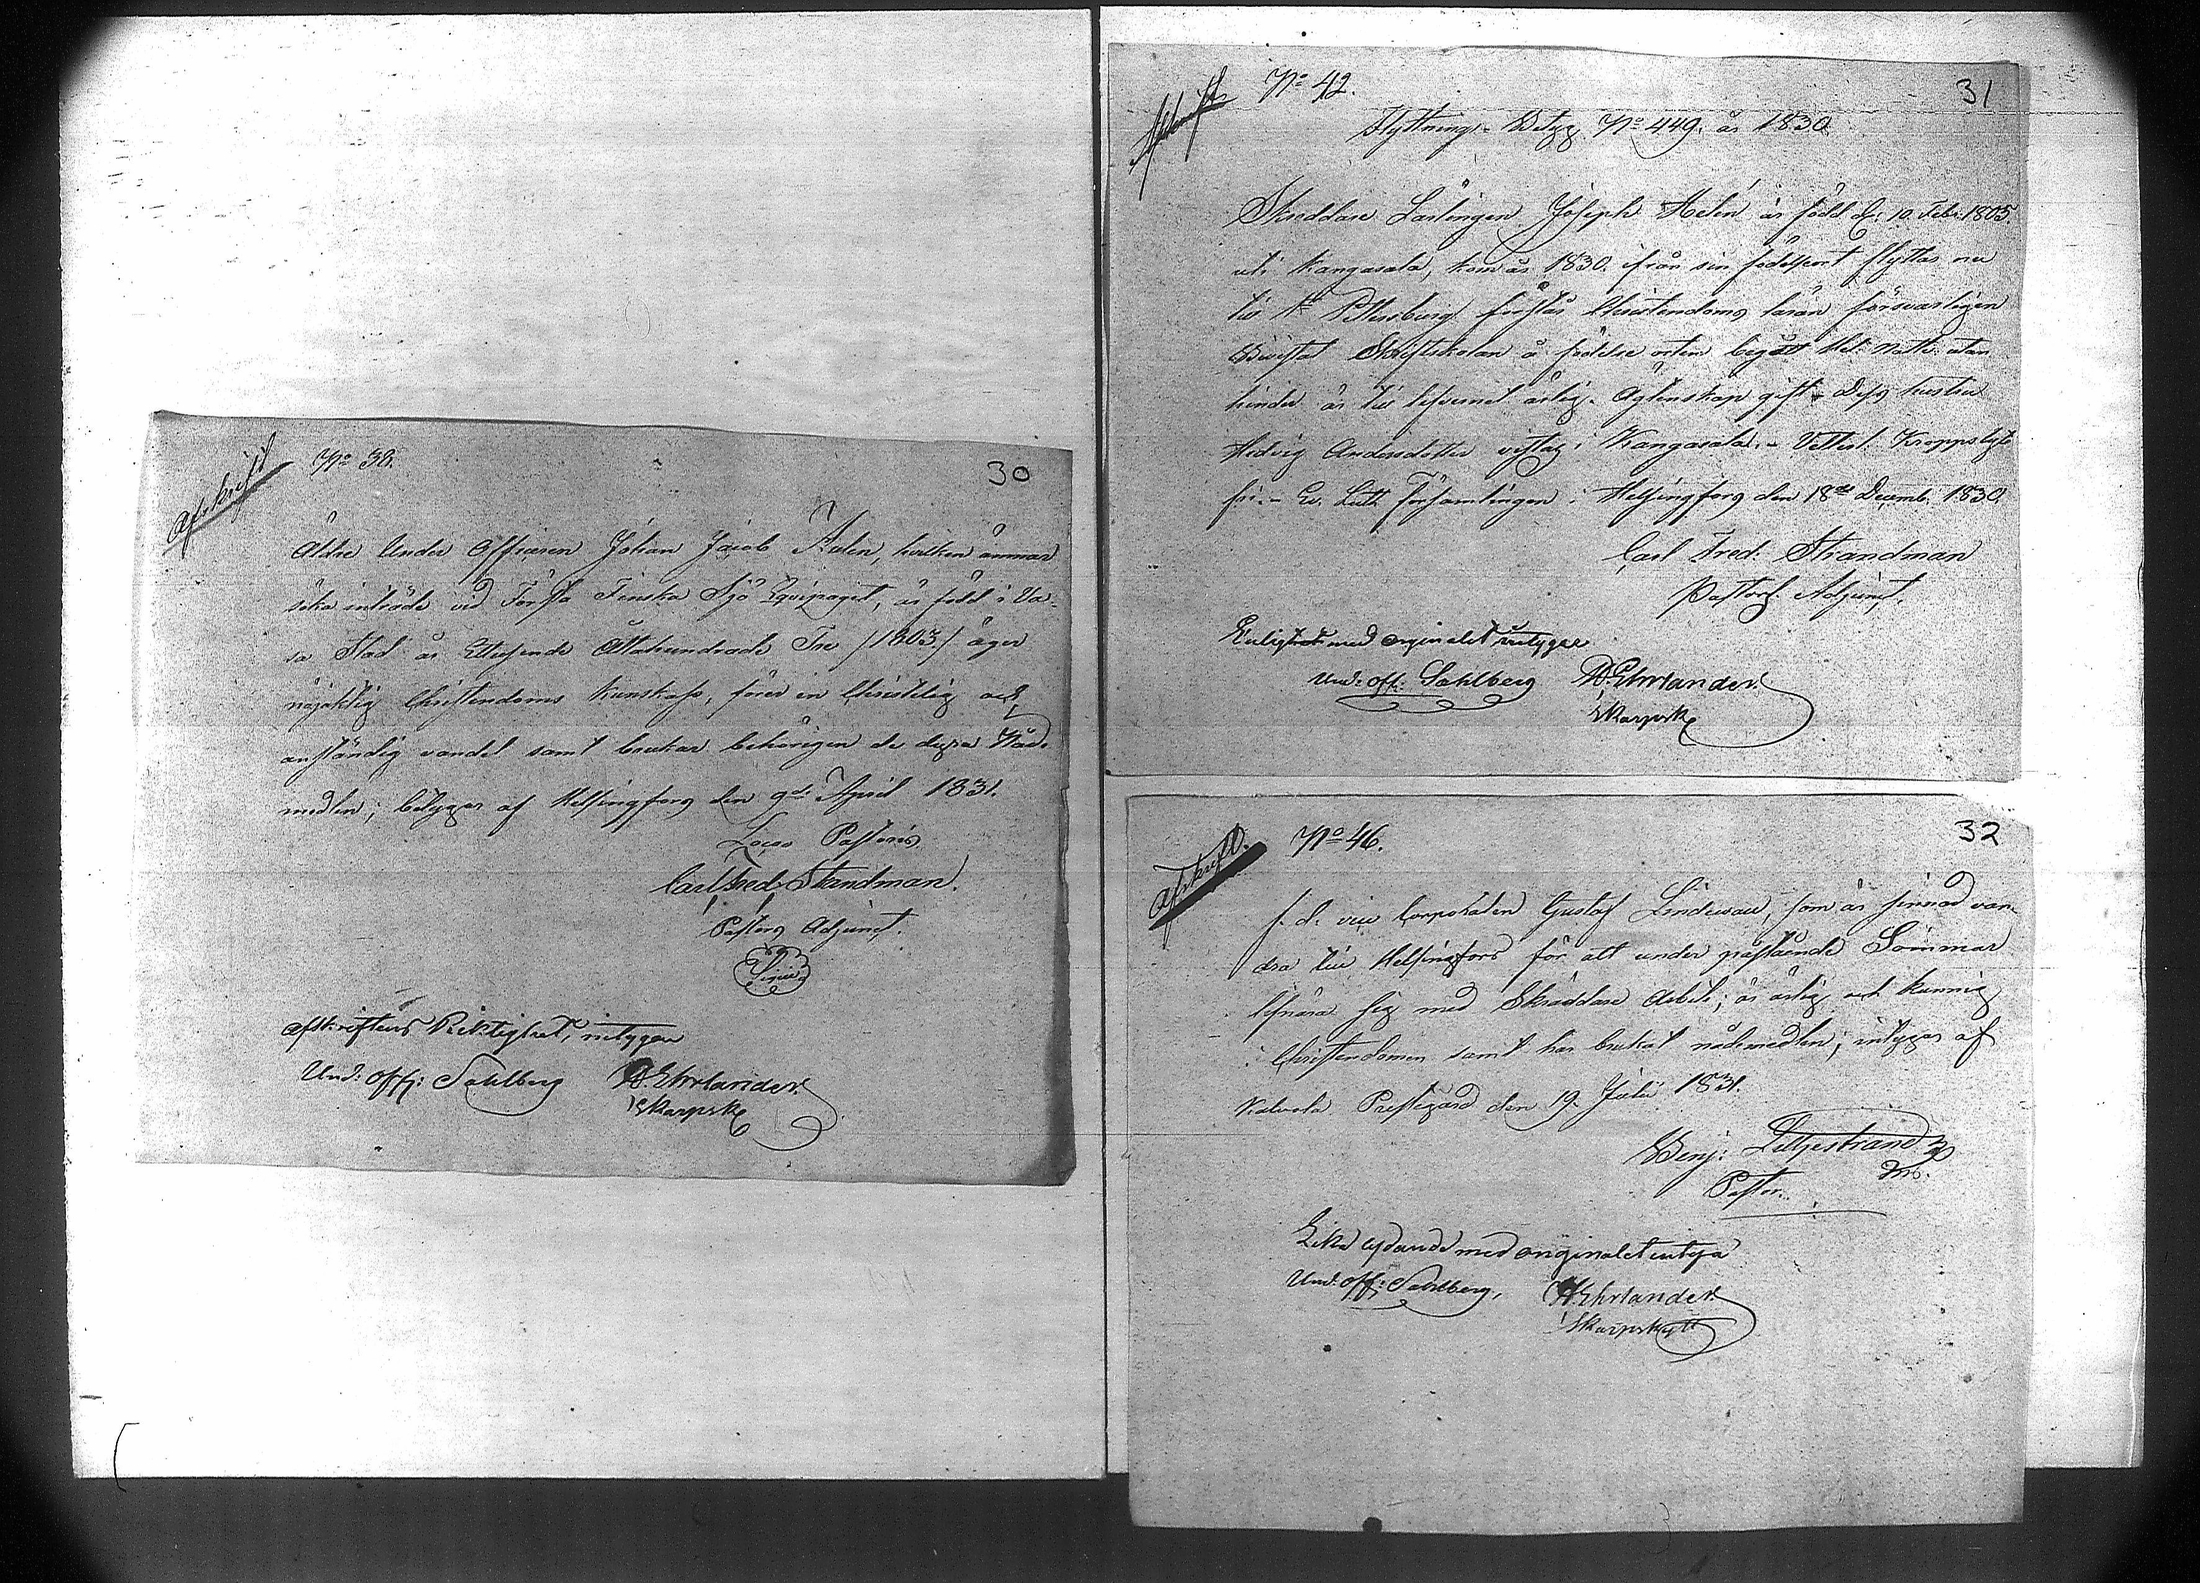 Afskrift
No 38.
30
Äldre Under Officeren Johan Jacob Åhlen, hvilken ämnar
söka inträde vid Första Finska Sjö Equipaget, är född i Va-
sa Stad år Ettusende Åttahundrade Tre /1803/ äger
nöjaktig Christendoms kunskap, fört en Christelig och
anständig vandel samt brukar behörigen de dyra Nåde
medlen; betygar af Helsingfors den 9de April 1831.
Loco Pastoris
Carl Fred: Strandman.
Pastors Adjunct.
Afskriftens Riktighet, intyggar
Und: off: Sahlberg A. Ehrlander.
Skarpsk
Afskrift
No 42.
31
Flyttnings-Betyg No 449. år 1830.
Skreddare Lärlingen Joseph Helén är född d. 10 Feb: 1805.
uti Kangasala, kom år 1830. ifrån sin födelseort flyttas nu
till St Petersburg förstår Christendoms läran försvarligen
Bevistat Skriftskolan å födelse orten begått H: Natt: utan
hinder är till lefvernet ärlig. Ägtenskap gift Dess hustru
Hedvig Andersdotter vistas i Kangasala. - Vitterl: Kroppslyte
fri. - Ev. Luth Församlingen i Helsingfors den 18de Decemb: 1830.
Carl Fred: Strandman
Pastors Adjunct.
Enlighet med originalet intyggar
Und: off: Sahlberg A. Ehrlander.
Skarpsk
Afskrift.
No 46.
32
f. d. vice Corporalen Gustaf, som är sinnad van-
dra till Helsingfors för att under påstående Sommar
lifnära sig med Skräddare Arbete; är ärlig och kunnig
i Christendomen samt har brukat nådemedlen; intygar af
Kalvola Prestegård den 19. Julii 1831.
Benj: Liljestrand
Pastor.
Lika lydande med originalet intyga
Und: off: Sahlberg, A. Ehrlander.
Skarpskytt